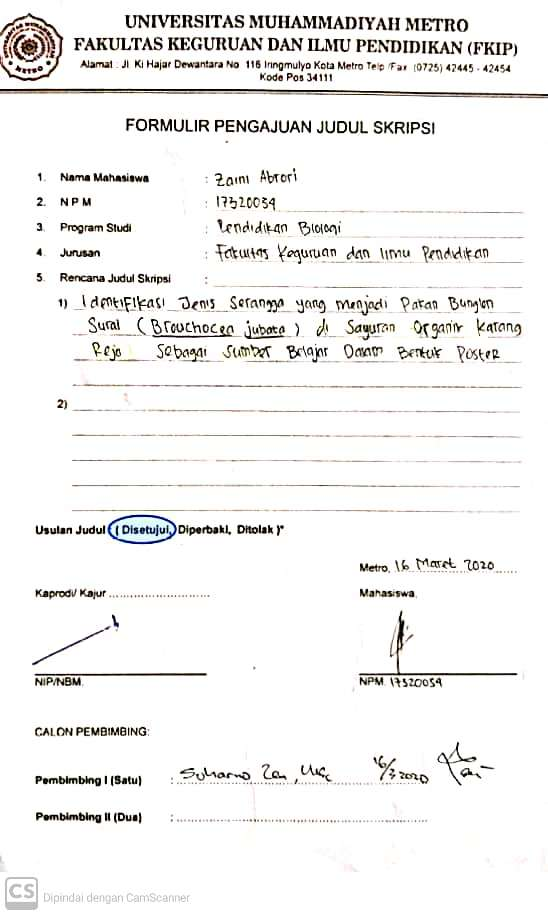 UNIVERSITAS MUHAMMADIYAH METRO
FAKULTAS KEGURUAN DAN ILMU PENDIDIKAN (FKIP)
Alamat : Jl. Ki Hajar Dewantara No. 116 Iringmulyo Kota Metro Telp /Fax. (0725) 42445 - 42454
Kode Pos 34111
METRO
FORMULIR PENGAJUAN JUDUL SKRIPSI
1. Nama Mahasiswa : Zaini Abrori
2. N P M : 17320034
3. Program Studi : Pendidikan Biologi
4. Jurusan : Fakultas Keguruan dan Ilmu Pendidikan
5. Rencana Judul Skripsi :
1) Identifikasi Jenis Serangga yang menjadi Pakan Bunglon
Surai (Brouchocea jubata) di Sayuran Organik Karang
Rejo Sebagai Sumber Belajar Dalam Bentuk Poster
2)
Usulan Judul ( Disetujui, Diperbaki, Ditolak )*
Metro, 16 Maret 2020
Kaprodi/ Kajur
Mahasiswa,
NIP/NBM.
NPM. 17320034
CALON PEMBIMBING:
Pembimbing I (Satu) : Suharno Zen, M.Sc 16/3 2020
Pembimbing II (Dua) :
CS Dipindai dengan CamScanner